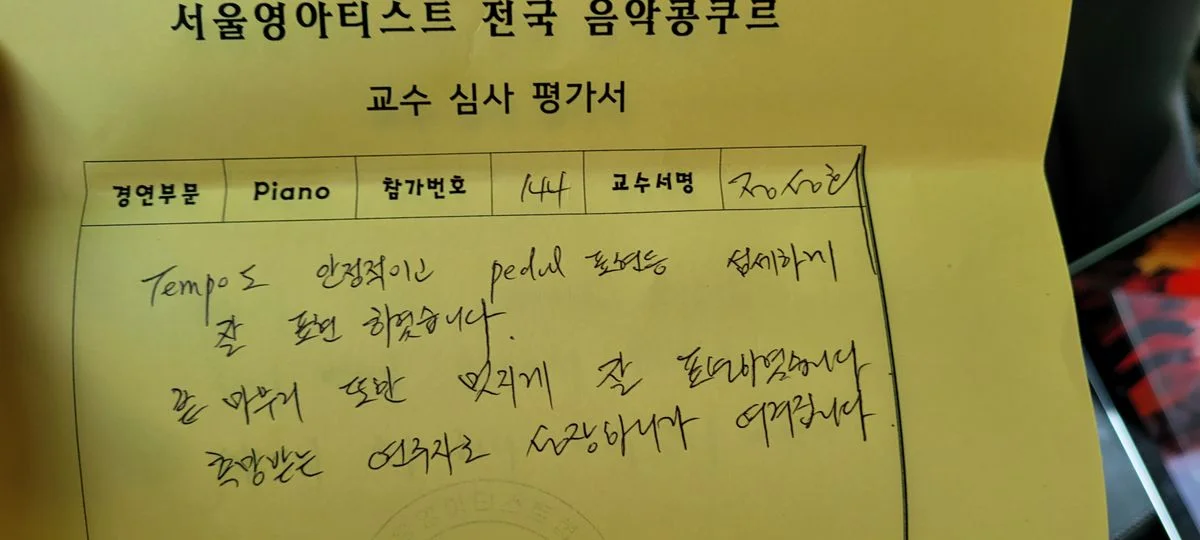 서울영아티스트 전국 음악콩쿠르
교수 심사 평가서
경연부문 Piano 참가번호 144 교수서명 정성희
Tempo도 안정적이고 pedal 표현등 섬세하게
잘 표현 하였습니다.
끝 마무리 또한 멋지게 잘 표현하였습니다
촉망받는 연주자로 성장하리라 여겨집니다
영아티스트